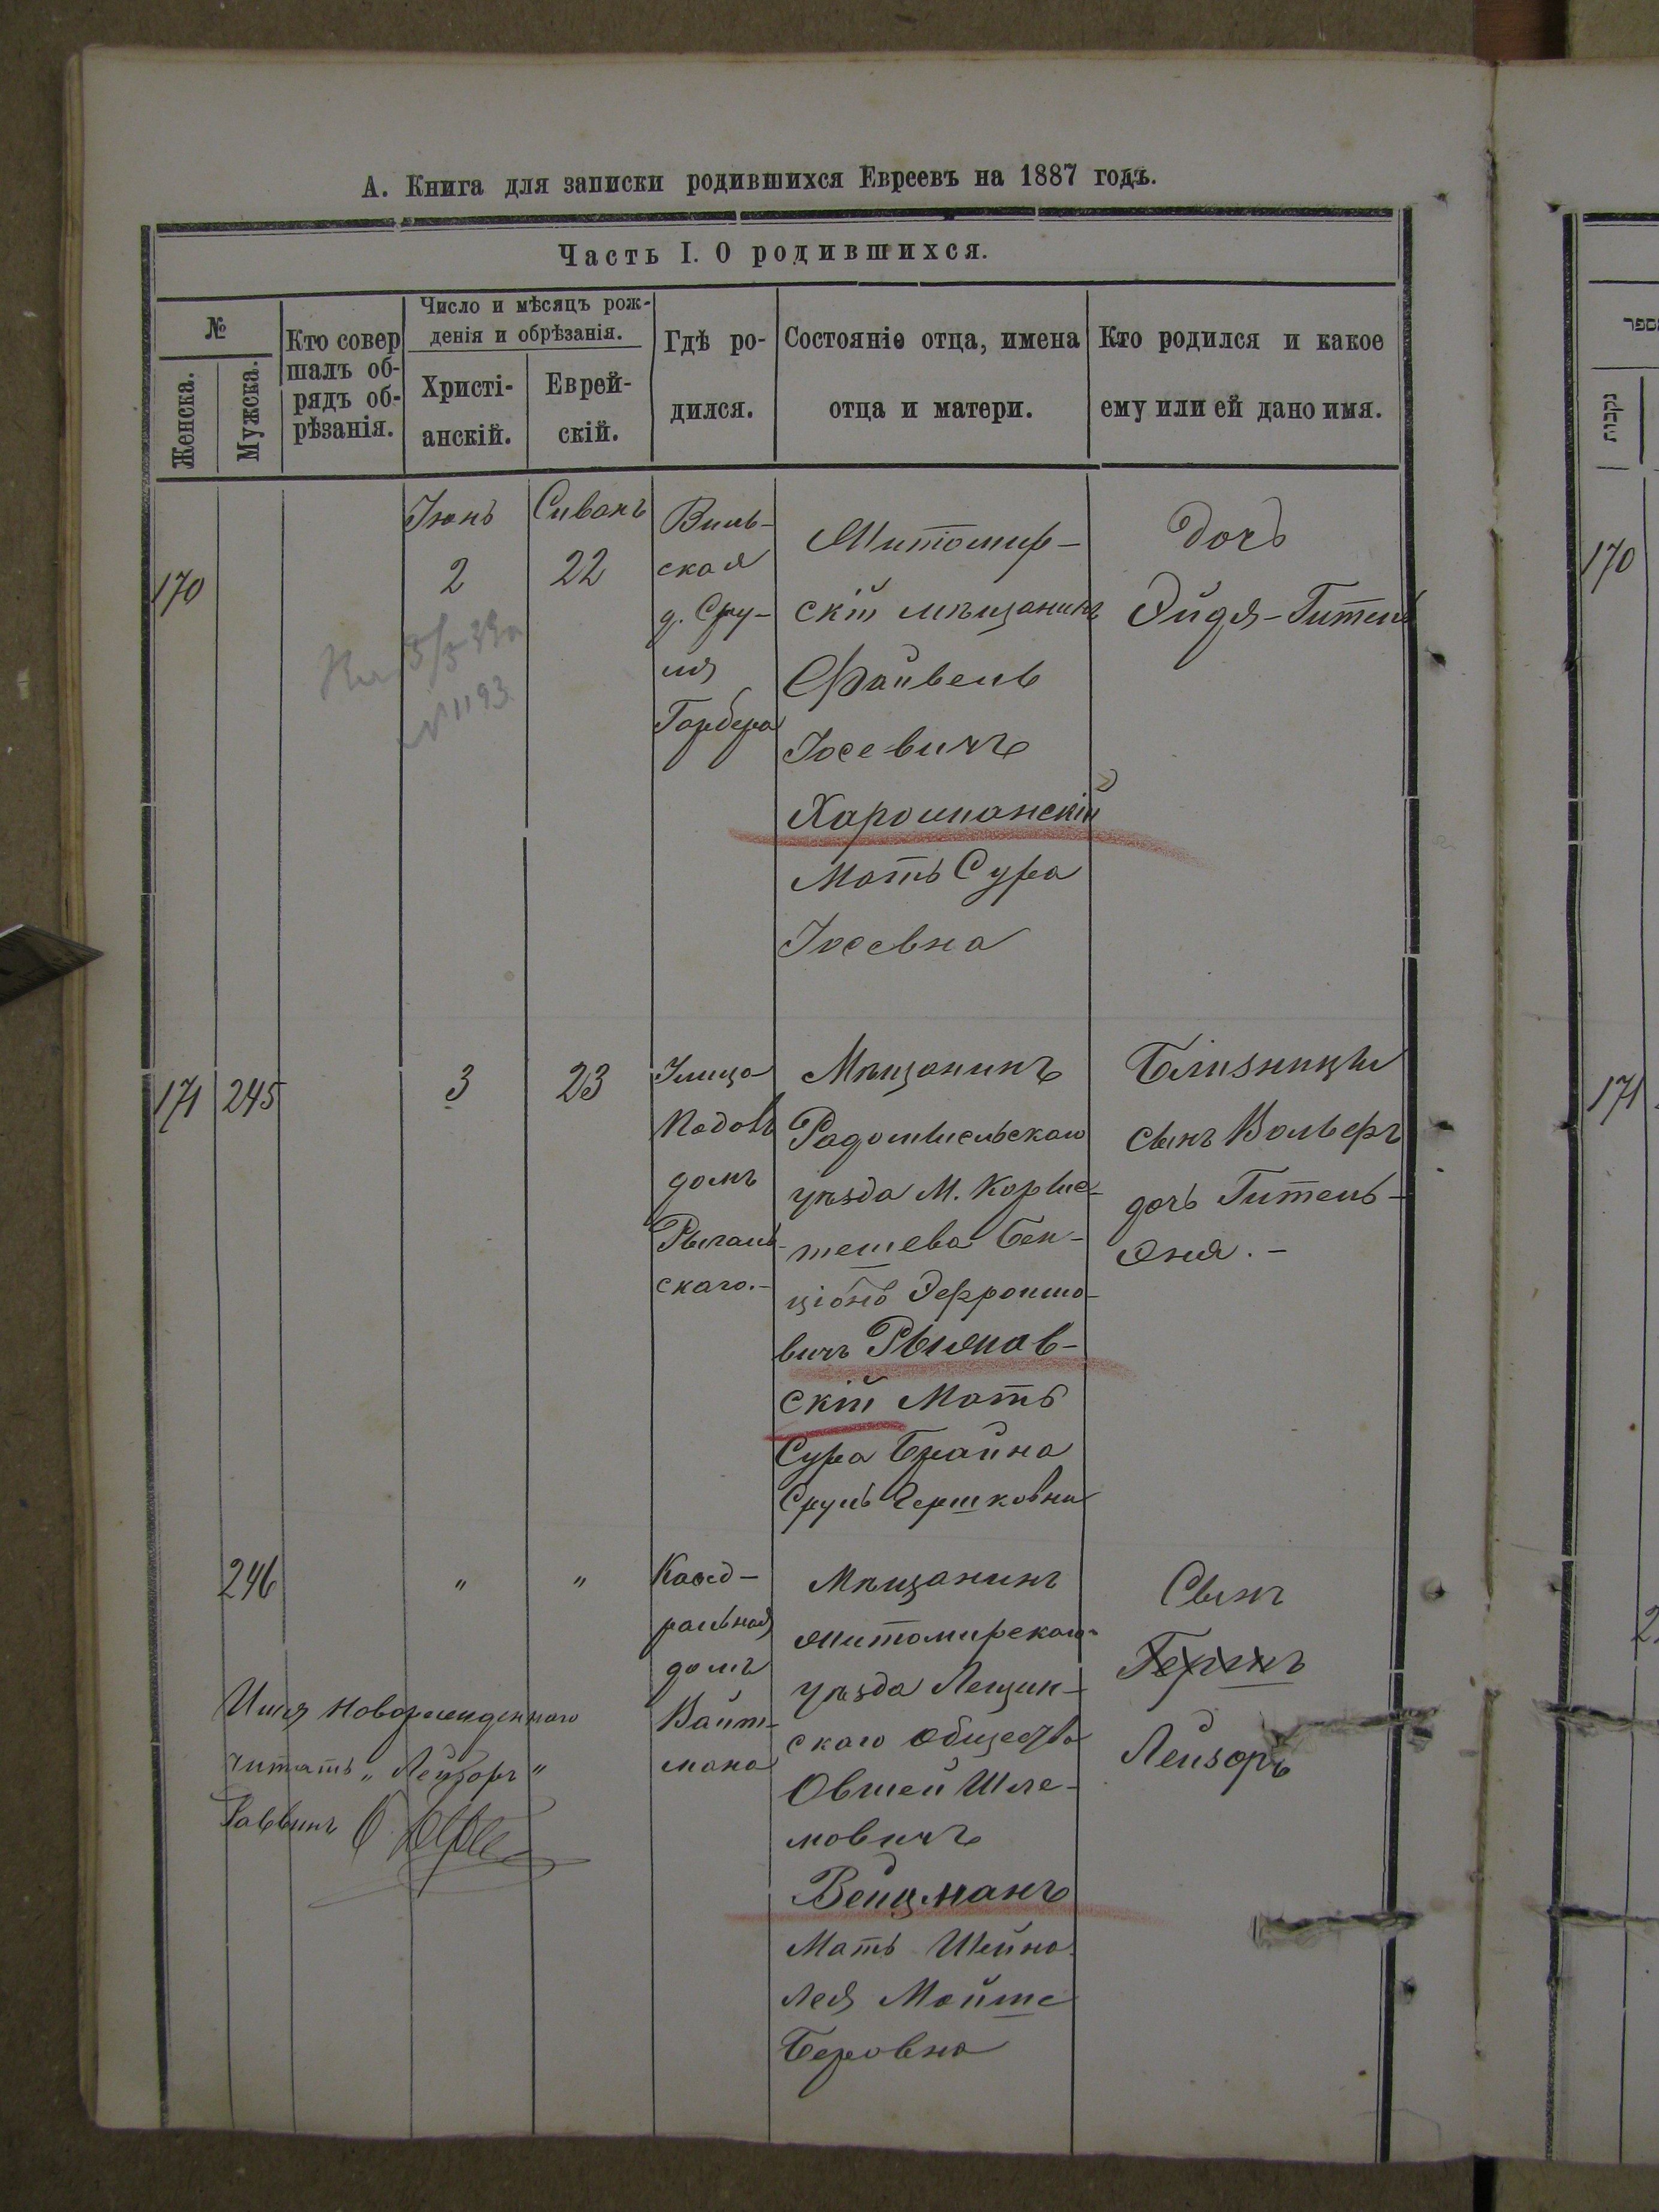 А. Книга для записки родившихся Евреевъ на 1887 годъ.
Часть I. О родившихся.
№
Женска.
Мужска.
Кто совер
шалъ об-
рядъ об-
рѣзанія.
Число и мѣсяцъ рож-
денія и обрѣзанія.
Христі-
анскій.
Еврей-
скій.
Гдѣ ро-
дился.
Состояніе отца, имена
отца и матери.
Кто родился и какое
ему или ей дано имя.
170
Іюнь
2
Сиванъ
22
Виль-
ская
д. Сру-
ля
Гарбера
Житомир-
скій мѣщанинъ
Файвель
Іосевичъ
Харошанскій
Мать Сура
Іосевна
Дочь
Эйдя-Гитель
№ 1193
171
245
3
23
Улица
Подолъ
домъ
Рыхаль-
скаго.-
Мѣщанинъ
Радомысльскаго
уѣзда М. Коры-
тешева Бен-
ціонъ Эфроимо-
вичъ
скій Мать
Сура Брайна
Сруль Гершковна
Близницы
сынъ Вольфъ
дочь Гитель-
Эня.-
246
"
"
Каѳед-
ральная
домъ
Вайт-
мана
Мѣщанинъ
Житомирскаго
уѣзда Лещин-
скаго общества
Овшей Шле-
мовичъ
Вейцманъ
Мать Шейна
Лея Мойше
Беровна
Сынъ
Гершъ
Лейзоръ
Имя новорожденнаго
читать "Лейзоръ"
Раввинъ
נקבות
170
171